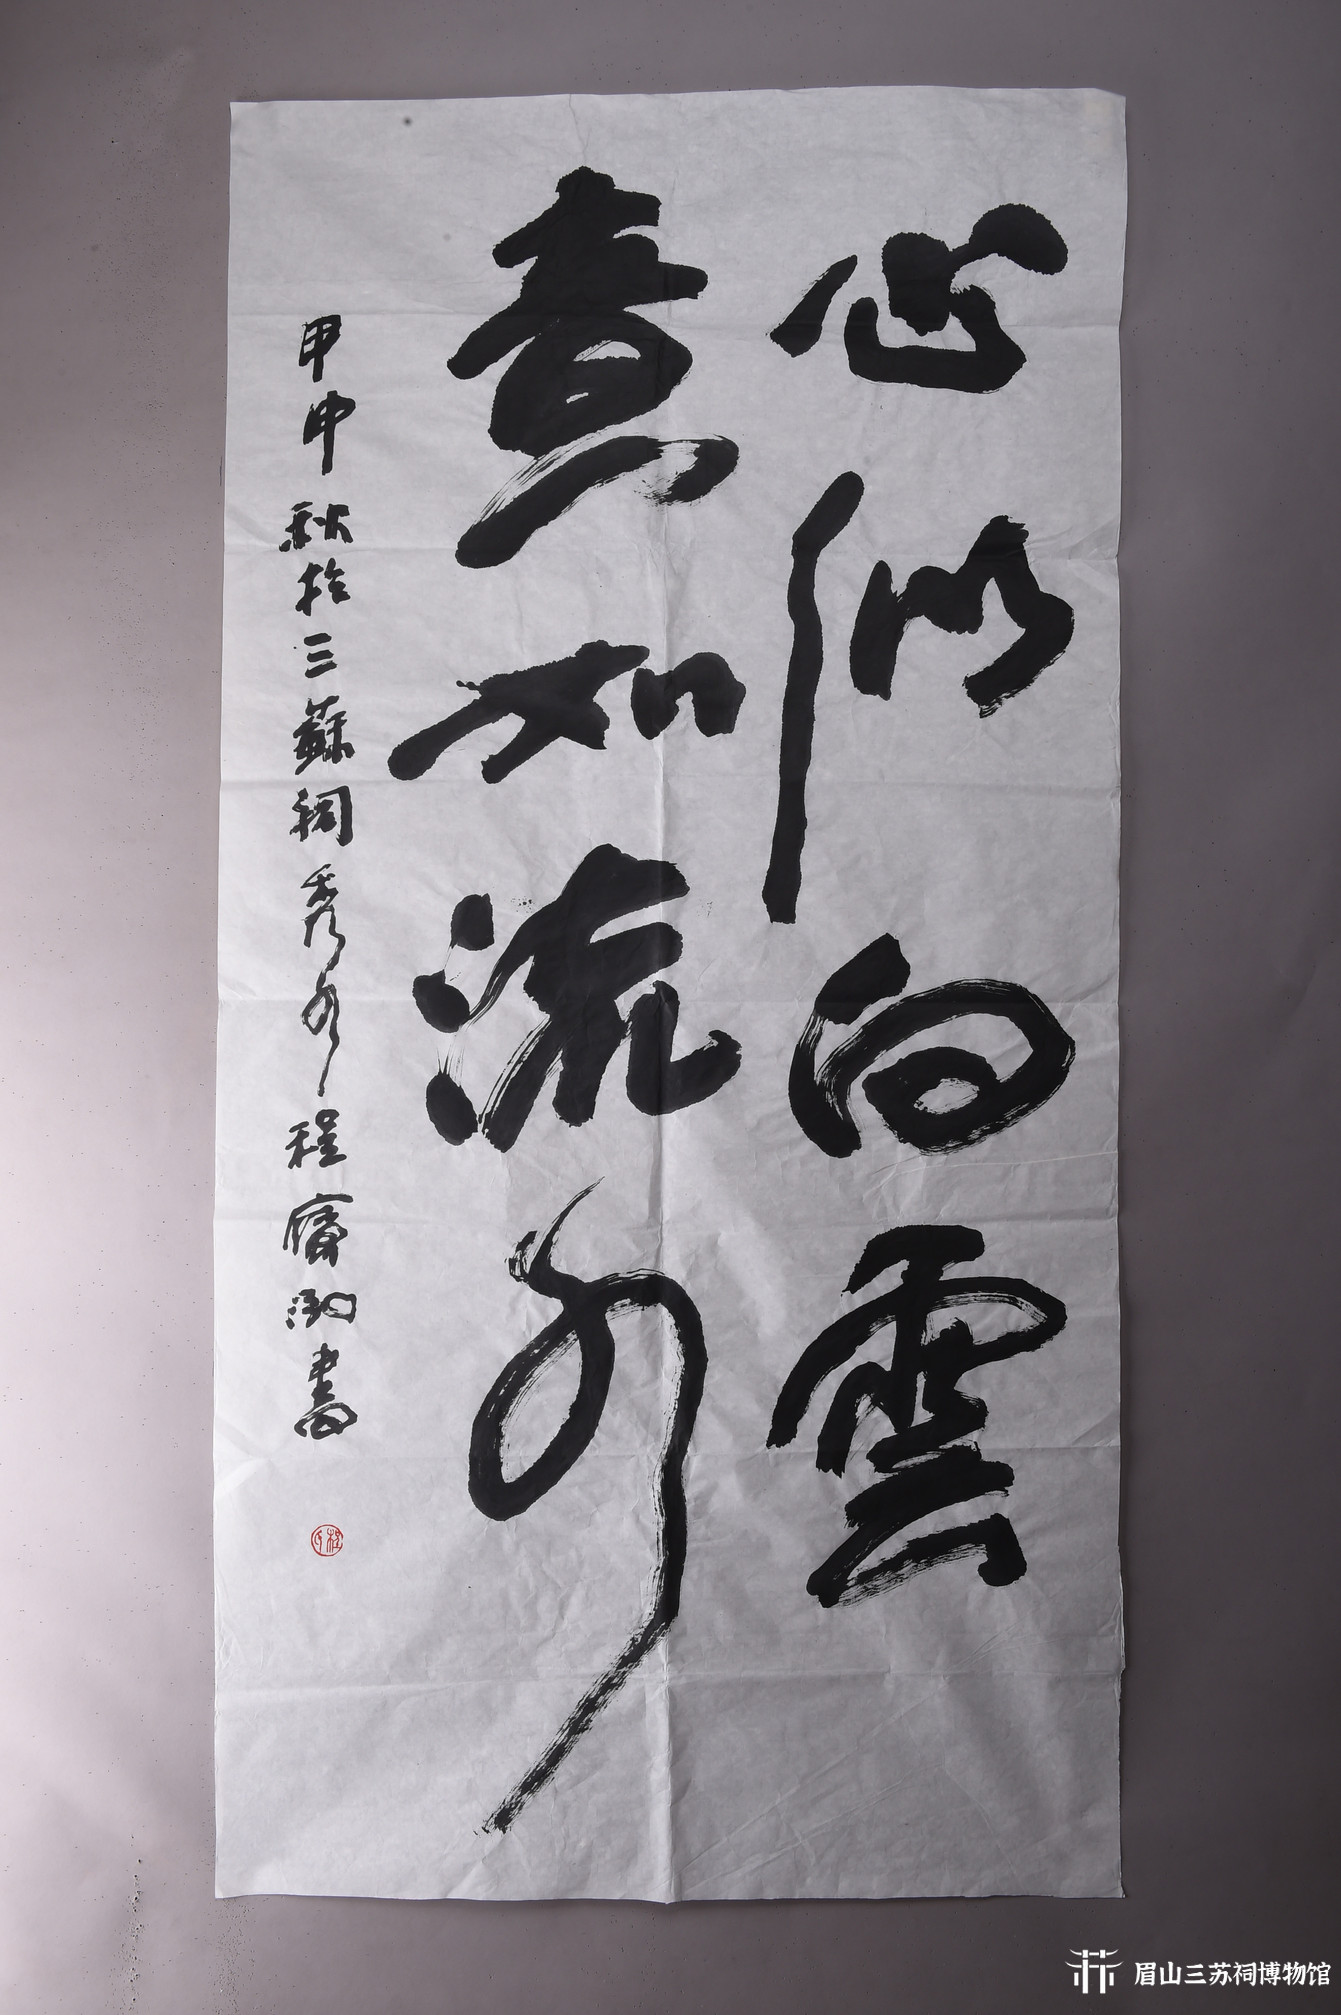 心似白雲
意如流水
甲申秋於三蘇祠秀水程寶泓書
程氏
眉山三苏祠博物馆